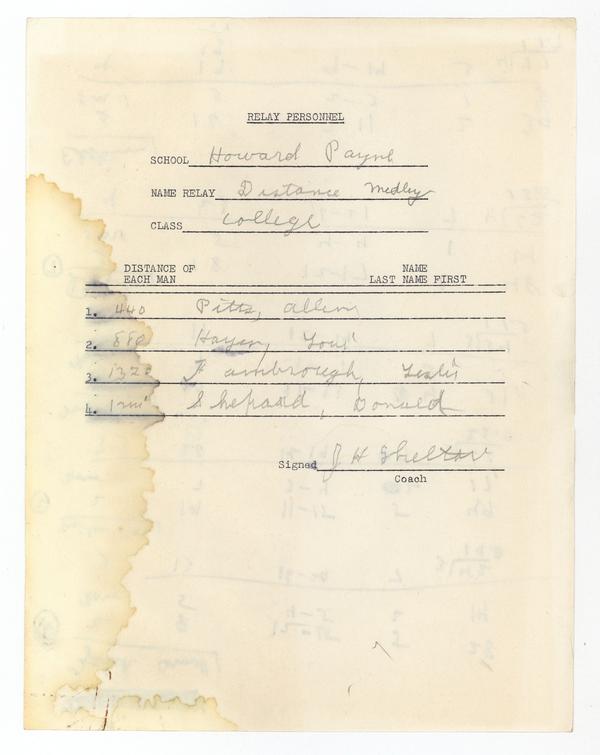 RELAY PERSONNEL
SCHOOL Howard Payne
NAME RELAY Distance Medley
CLASS College
DISTANCE OF EACH MAN NAME LAST NAME FIRST
1. 440 Pitts, Allen
2. 880 Hayes, Loui
3. 1320 Fambrough, Leslie
4. 1 mi Shepard, Donald
Signed J H Shelton
Coach